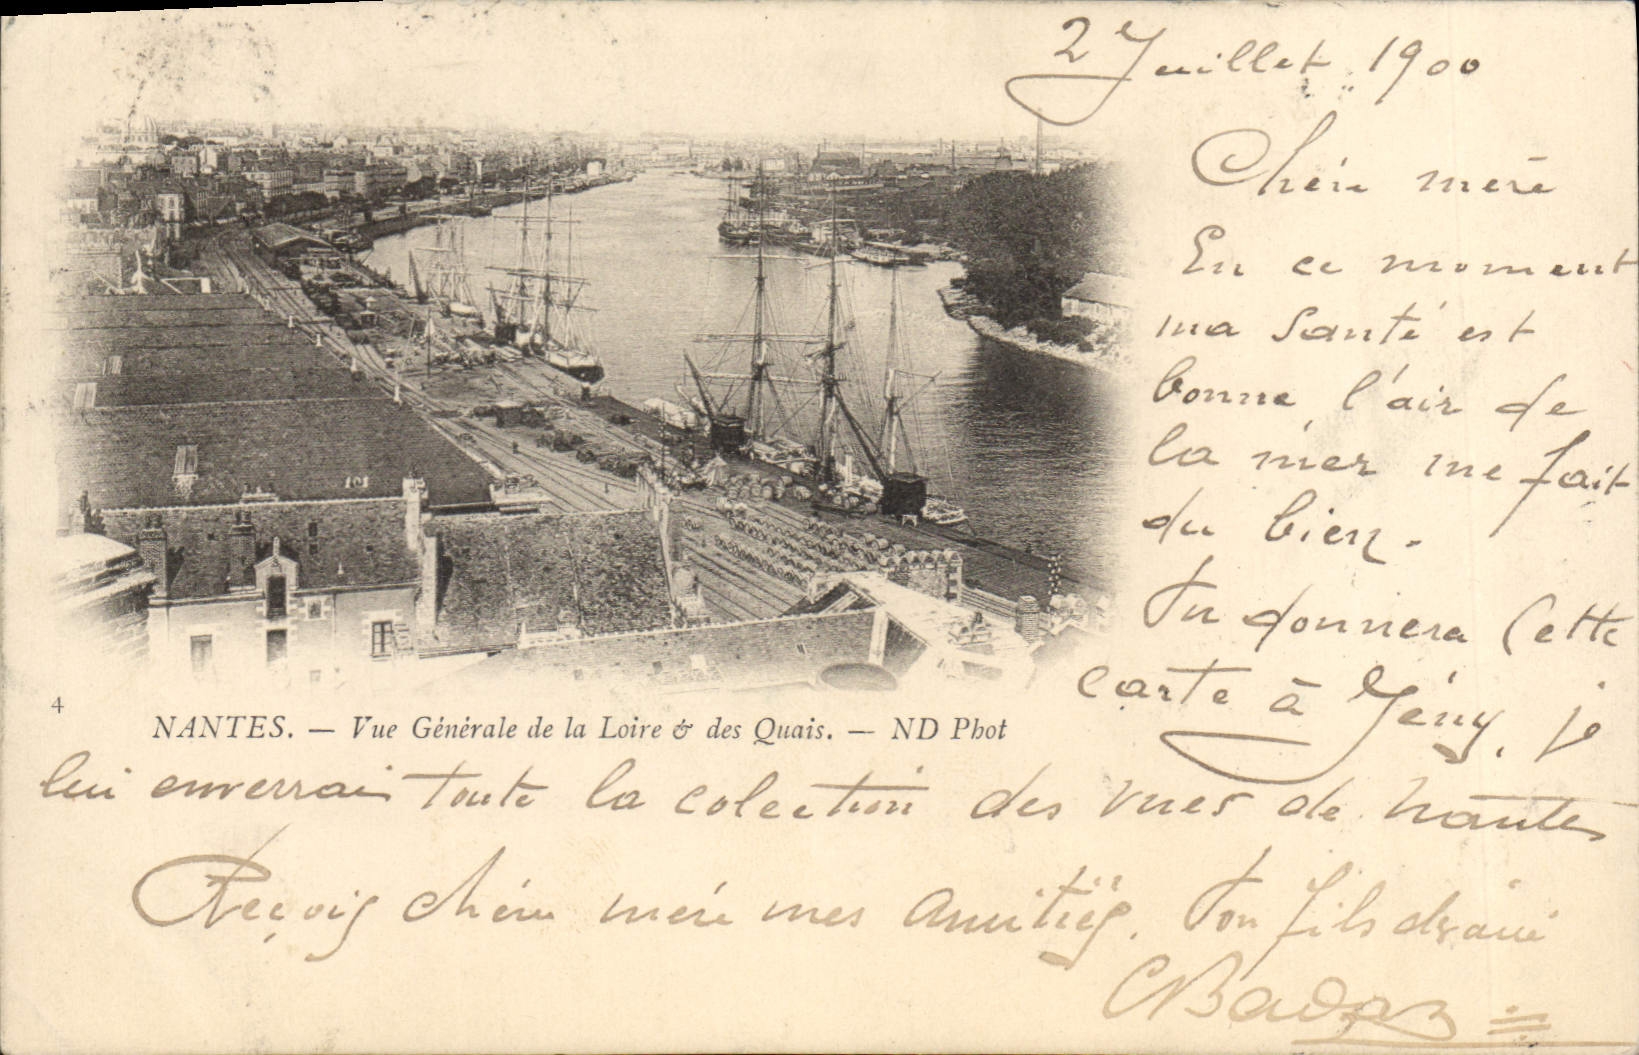 2 Juillet 1900
Chère mère
En ce moment
ma santé est
bonne l'air de
la mer me fait
du bien.
Tu donnera cette
carte à Jény, je
4
NANTES. — Vue Générale de la Loire & des Quais. — ND Phot
lui enverrai toute la colection des vues de nantes
Reçois chère mère mes amitiés. Ton fils